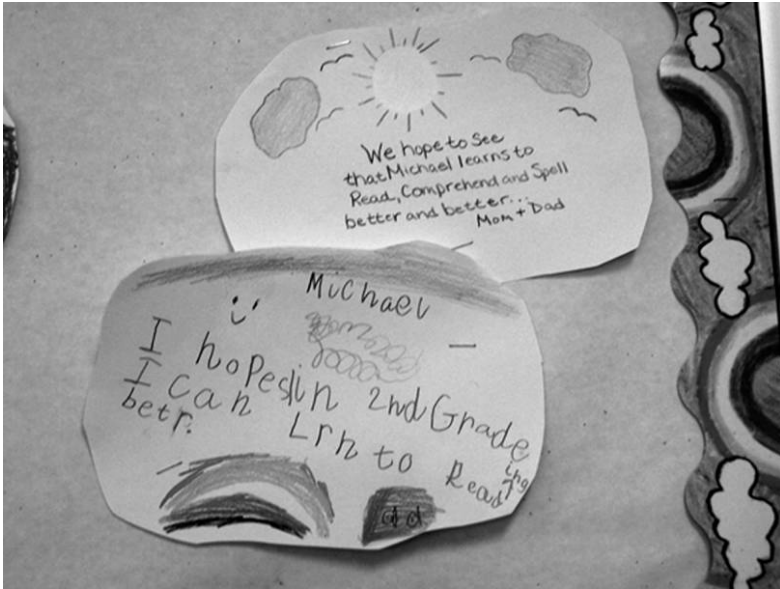 We hope to see
that Michael learns to
Read, Comprehend and Spell
better and better...
Mom + Dad
Michael
I hopes in 2nd Grade
I can Lrn to Reading
betr.